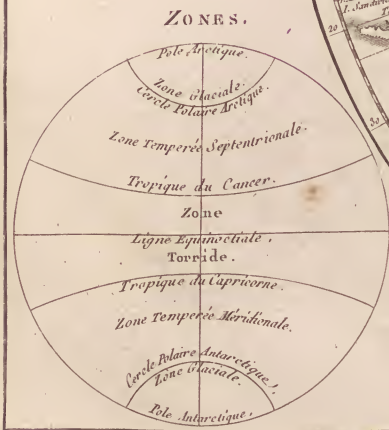 ZONES.
Pole Arctique.
Zone Glaciale.
Cercle Polaire Arctique.
Zone Temperée Septentrionale.
Tropique du Cancer.
Zone
Ligne Equinoctiale.
Torride.
Tropique du Capricorne.
Zone Temperée Méridionale.
Cercle Polaire Antarctique.
Zone Glaciale.
Pole Antarctique.
20
30